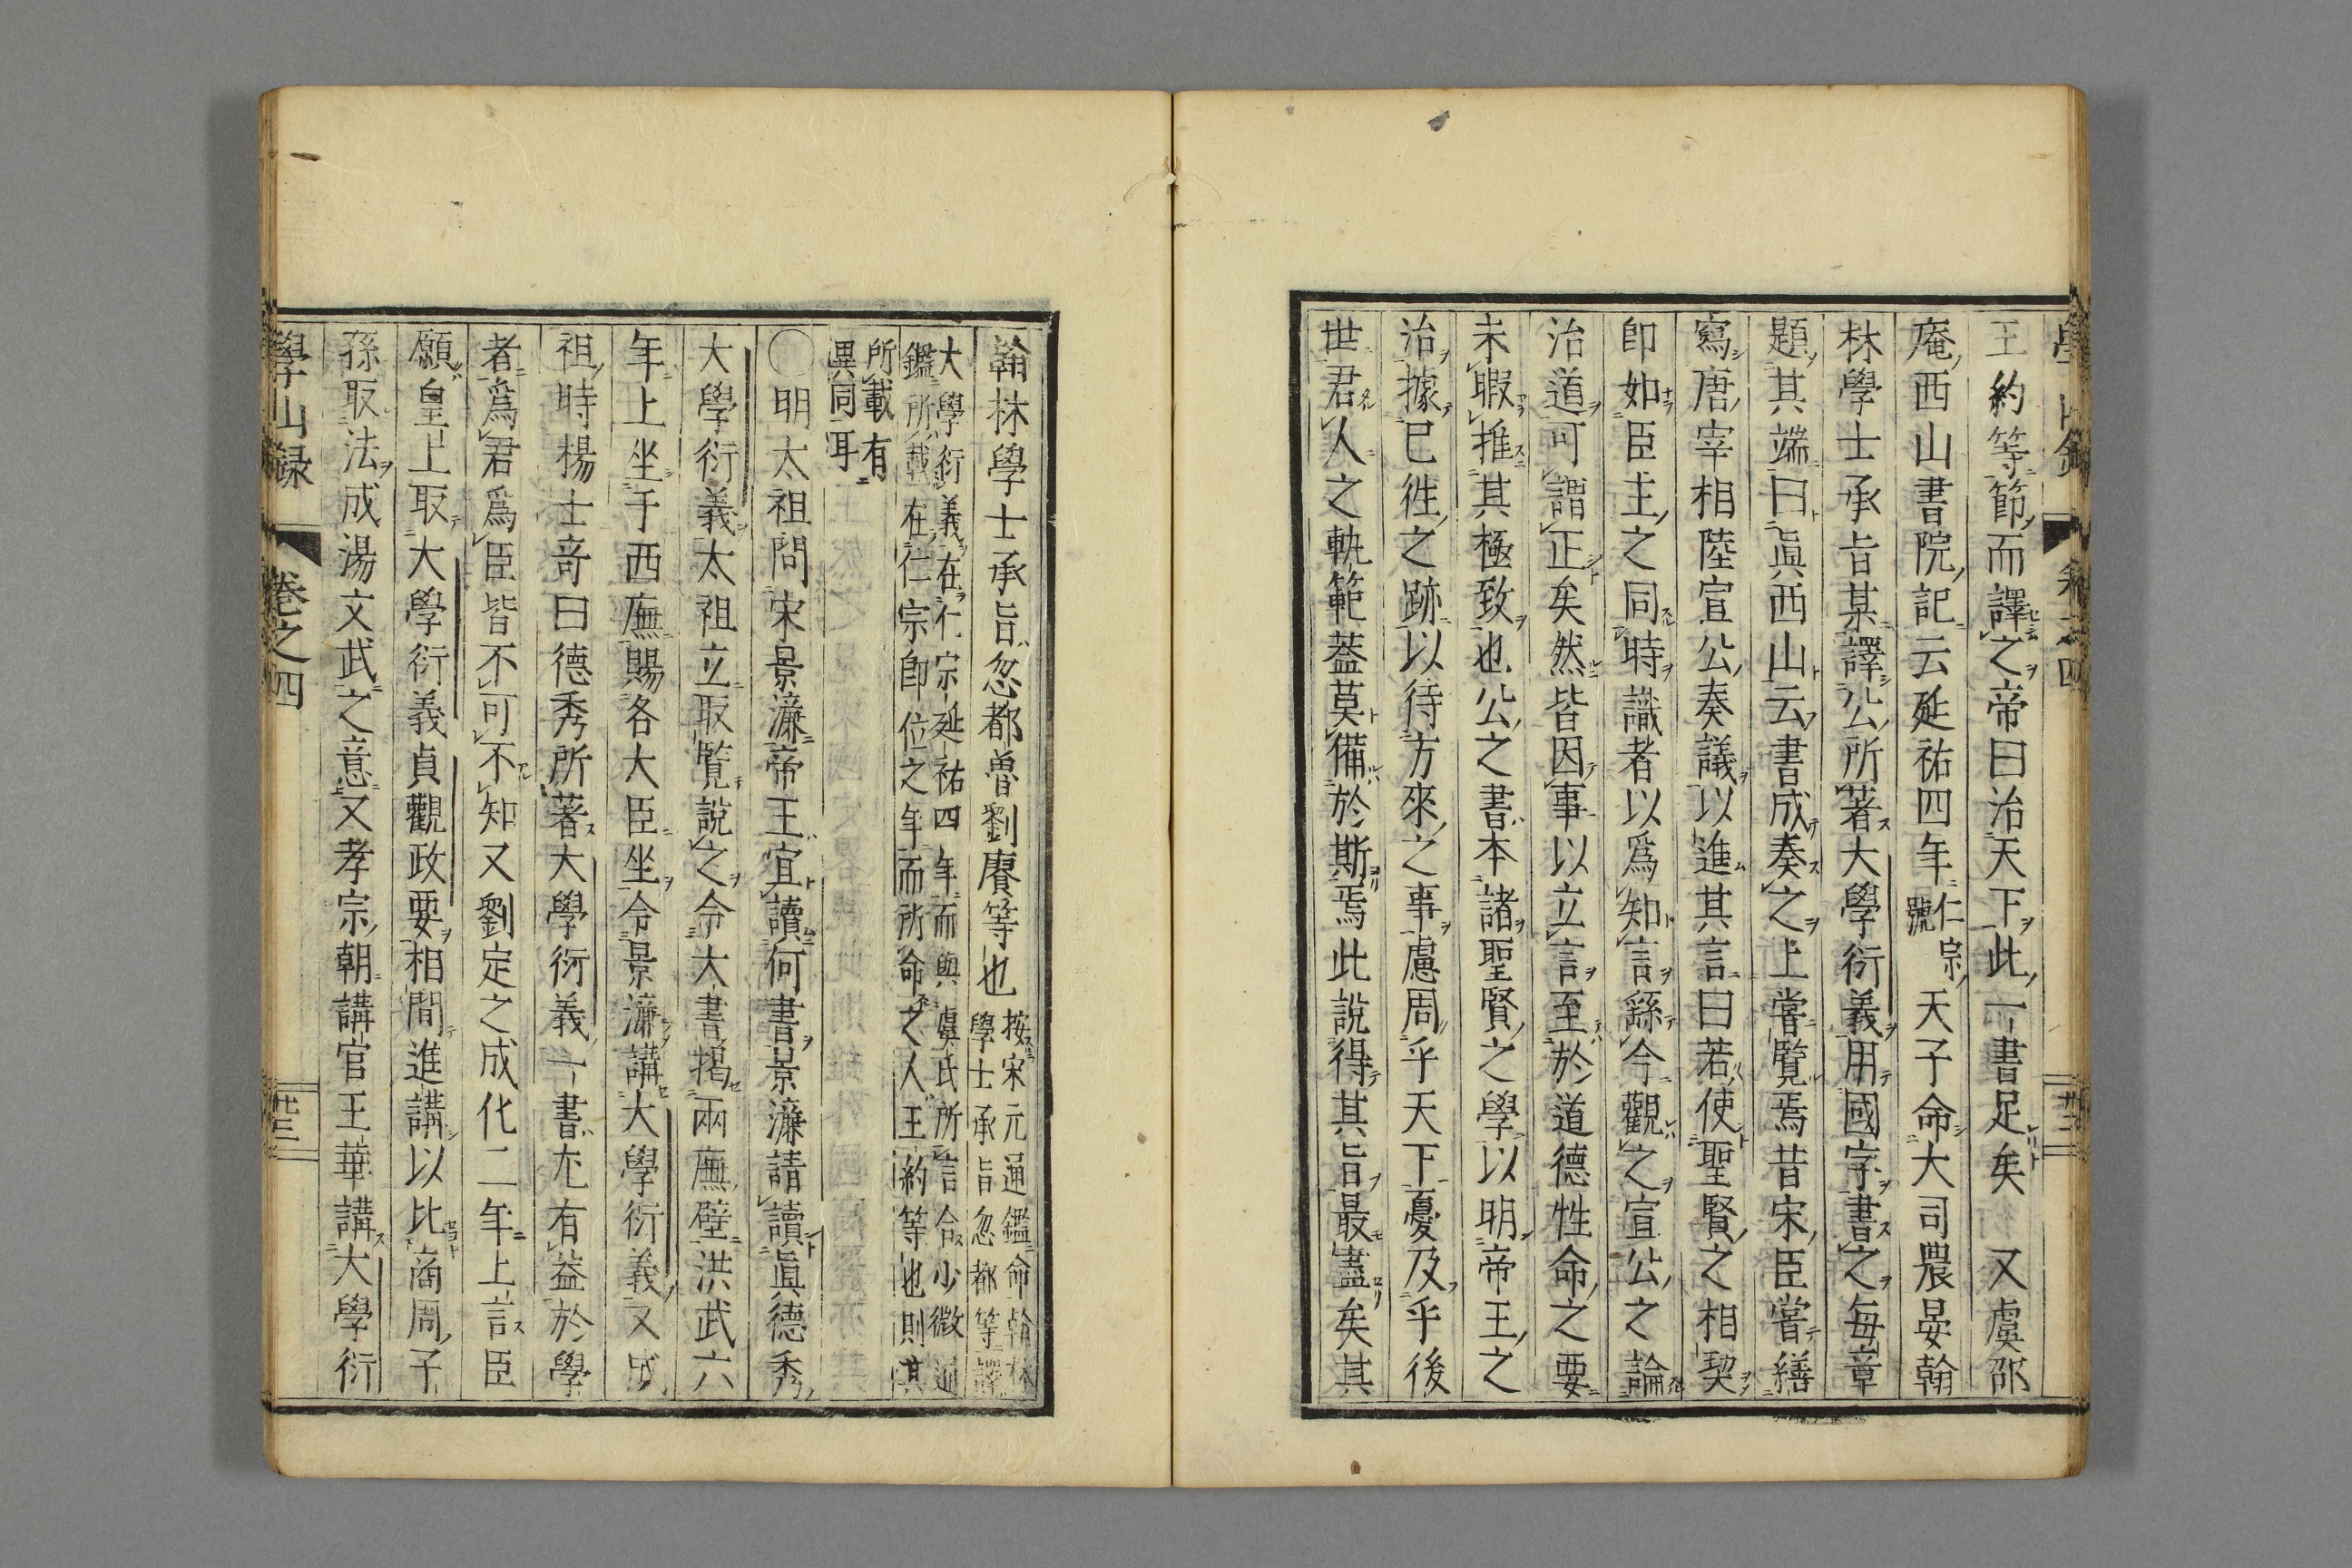 王約等節而譯之帝曰治天下此一書足矣又虞邵
庵西山書院記云延祐四年仁宗號天子命大司農晏翰
林學士承旨某譯公所著大學衍義用國字書之每章
題其端曰眞西山云書成奏之上嘗覽焉昔宋臣嘗繕
寫唐宰相陸宣公奏議以進其言曰若使聖賢之相契
卽如臣主之同時識者以爲知言繇今觀之宣公之論
治道可謂正矣然皆因事以立言至於道德性命之要
未暇推其極致也公之書本諸聖賢之學以明帝王之
治據已徃之跡以待方來之事慮周乎天下憂及乎後
世君人之軌範葢莫備於斯焉此說得其旨最盡矣其
翰林學士承旨忽都魯劉賡等也
按宋元通鑑命翰林
學士承旨忽都等譯
大學衍義在仁宗延祐四年而與虞氏所言合少微通
鑑所載在仁宗卽位之年而所命之人王約等也則其
所載有
異同耳
〇明太祖問宋景濂帝王宜讀何書景濂請讀眞德秀
大學衍義太祖立取覽說之令大書揭兩廡壁洪武六
年上坐于西廡賜各大臣坐令景濂講大學衍義又成
祖時楊士奇曰德秀所著大學衍義一書尢有益於學
者爲君爲臣皆不可不知又劉定之成化二年上言臣
願皇上取大學衍義貞觀政要相間進講以比商周子
孫取法成湯文武之意又孝宗朝講官王華講大學衍
學山錄 卷之四 廿三